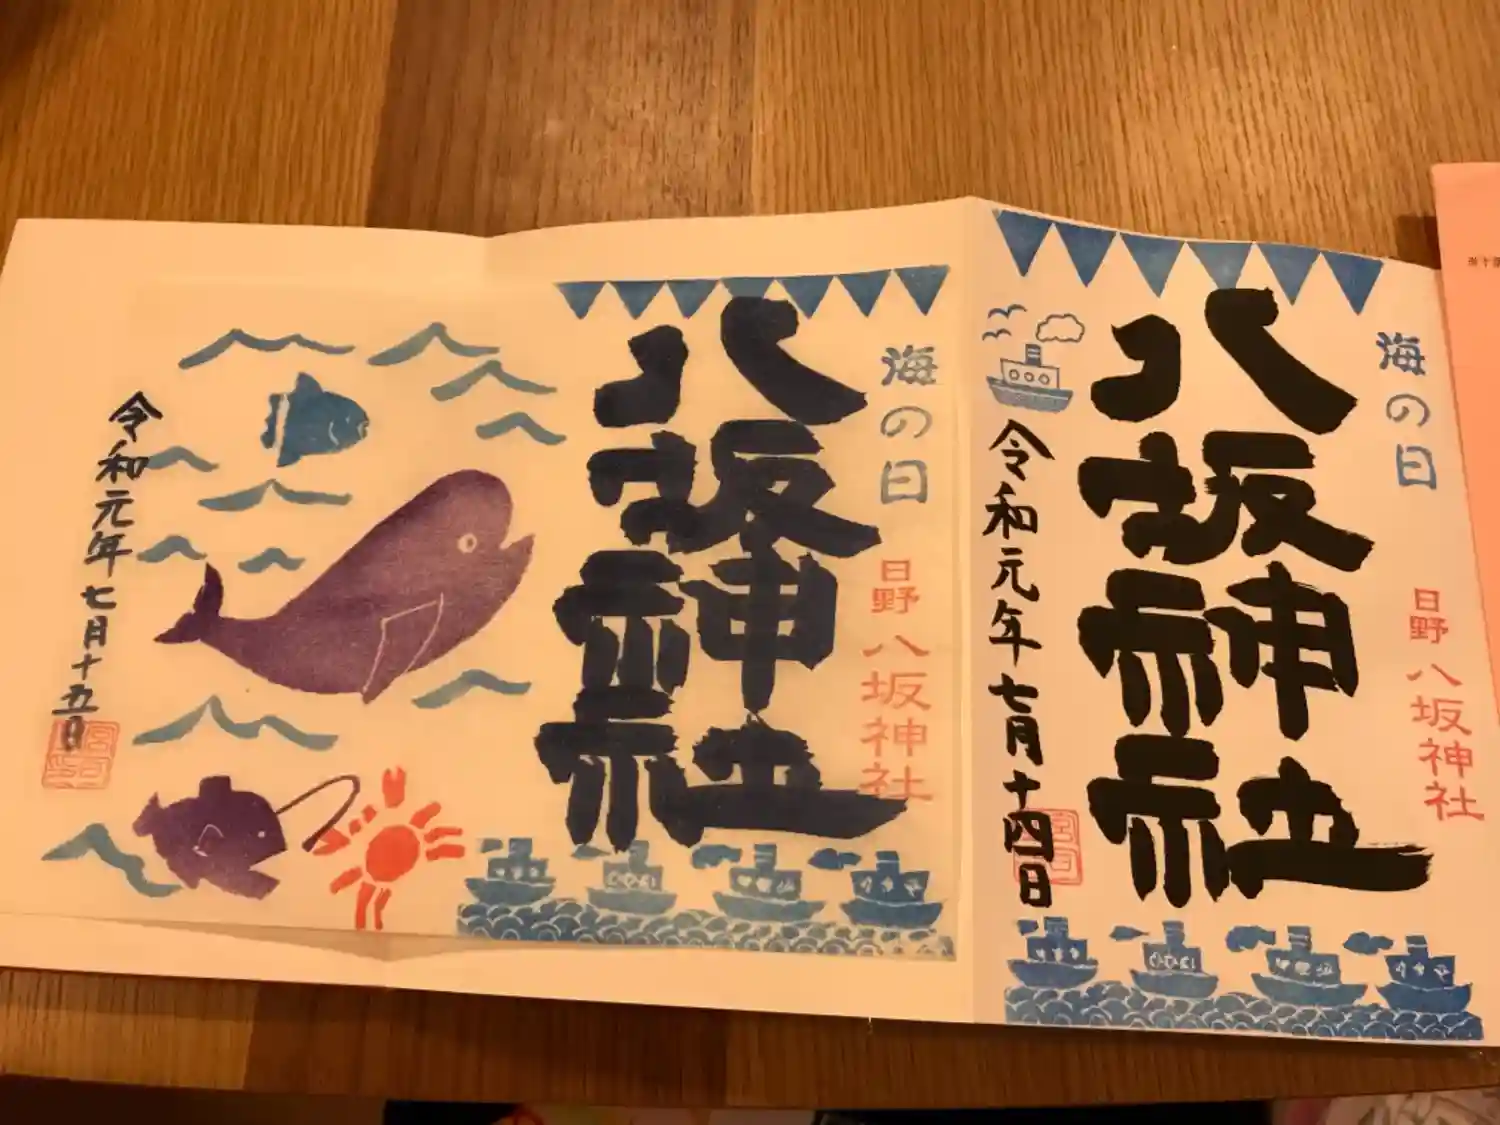 海の日
日野 八坂神社
八坂神社
令和元年七月十四日
海の日
日野 八坂神社
八坂神社
令和元年七月十五日